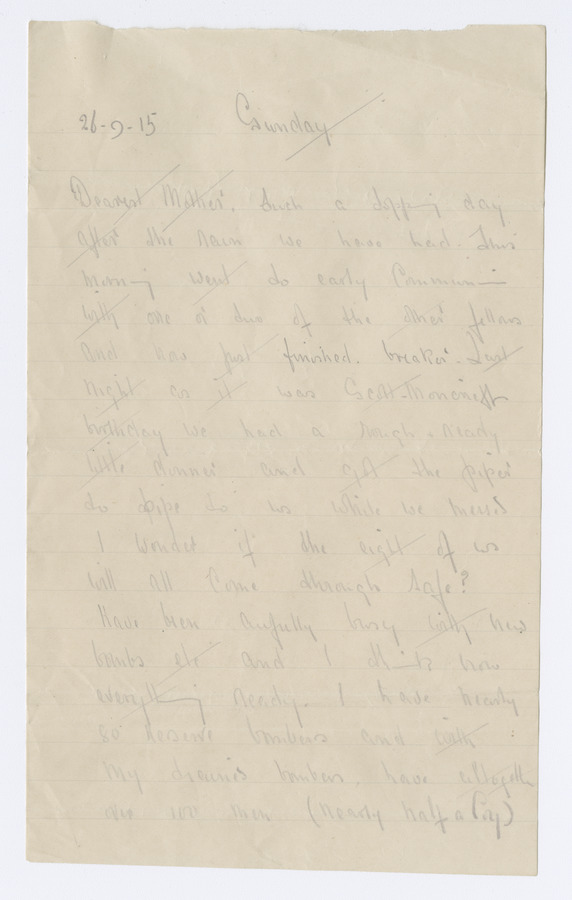 26-9-15 Sunday
Dearest Mother. Such a topping day
after the rain we have had. This
morning went to early Communion
with one or two of the other fellows
and has just finished. breaker. Last
night as it was Scott-Moncrieff
birthday we had a rough & ready
little dinner and got the piper
to pipe to us while we messed
I wonder if the eight of us
will all come through safe?
Have been awfully busy with new
bombs etc and I think now
everything ready. I have nearly
80 Reserve bombers and with
my trained bombers. have altogether
over 100 men (nearly half a Coy)